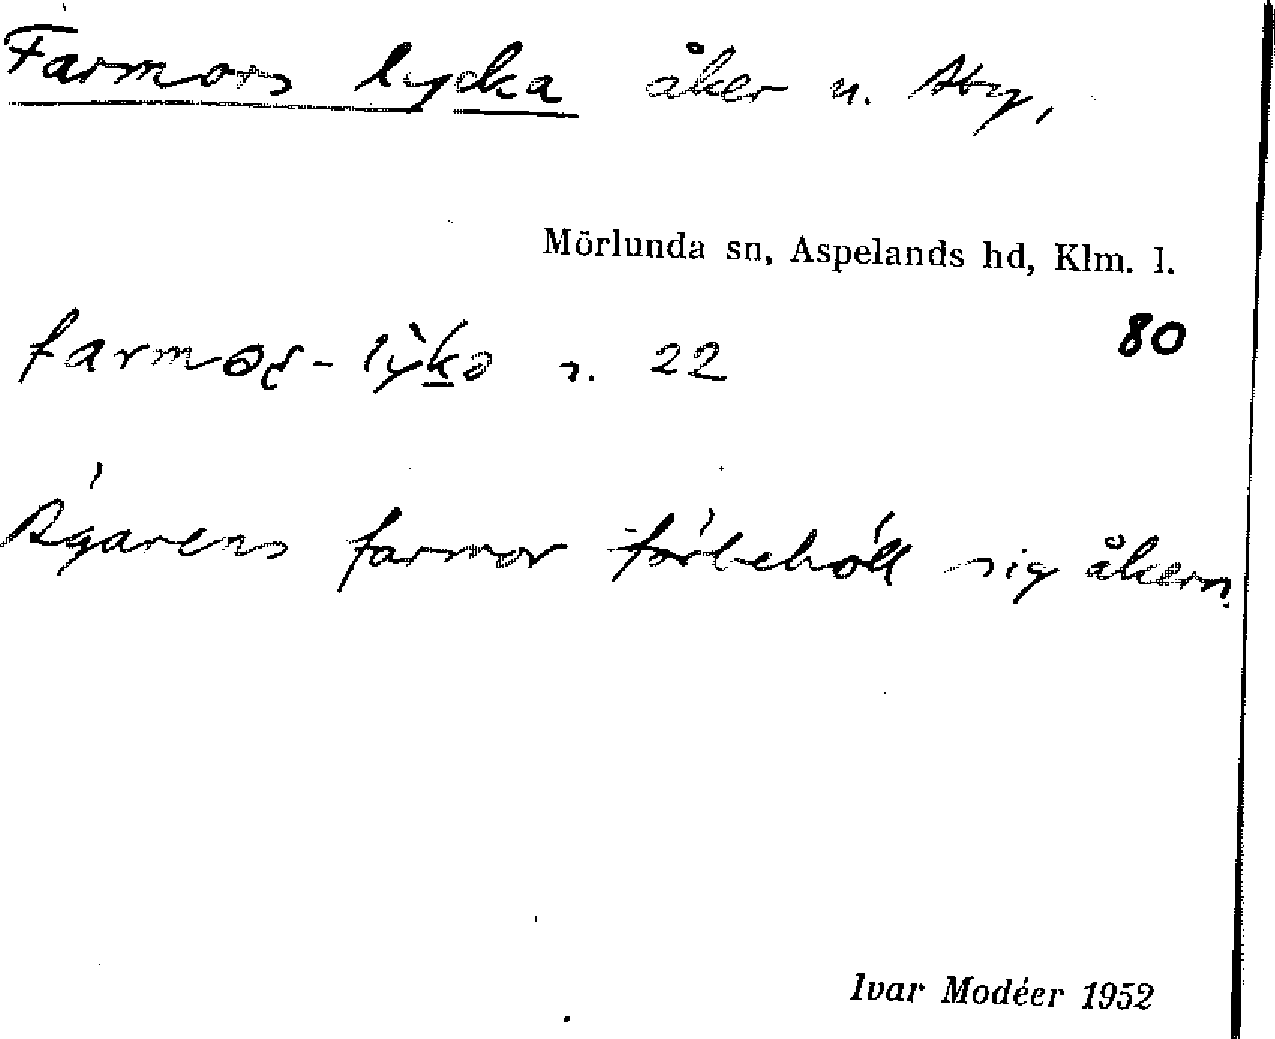 Farmors lycka åker u. Åby,
Mörlunda sn, Aspelands hd, Klm. l.
80
farmoʂ- lỳkə s. 22
Ägarens farmor förbehöll sig åkern.
Ivar Modéer 1952